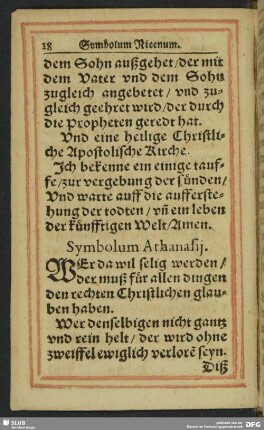 18 Symbolum Nicenum.
dem Sohn außgehet / der mit
dem Vater vnd dem Sohn
zugleich angebetet / vnd zu-
gleich geehret wird / der durch
die Propheten geredt hat.
Vnd eine heilige Christli-
che Apostolische Kirche.
Ich bekenne ein einige tauf-
fe / zur vergebung der sünden /
Vnd warte auff die aufferste-
hung der todten / vñ ein leben
der künfftigen Welt / Amen.
Symbolum Athanasij.
WEr da wil selig werden /
der muß für allen dingen
den rechten Christlichen glau-
ben haben.
Wer denselbigen nicht gantz
vnd rein helt / der wird ohne
zweiffel ewiglich verlorẽ seyn.
Diß
SLUB
DFG